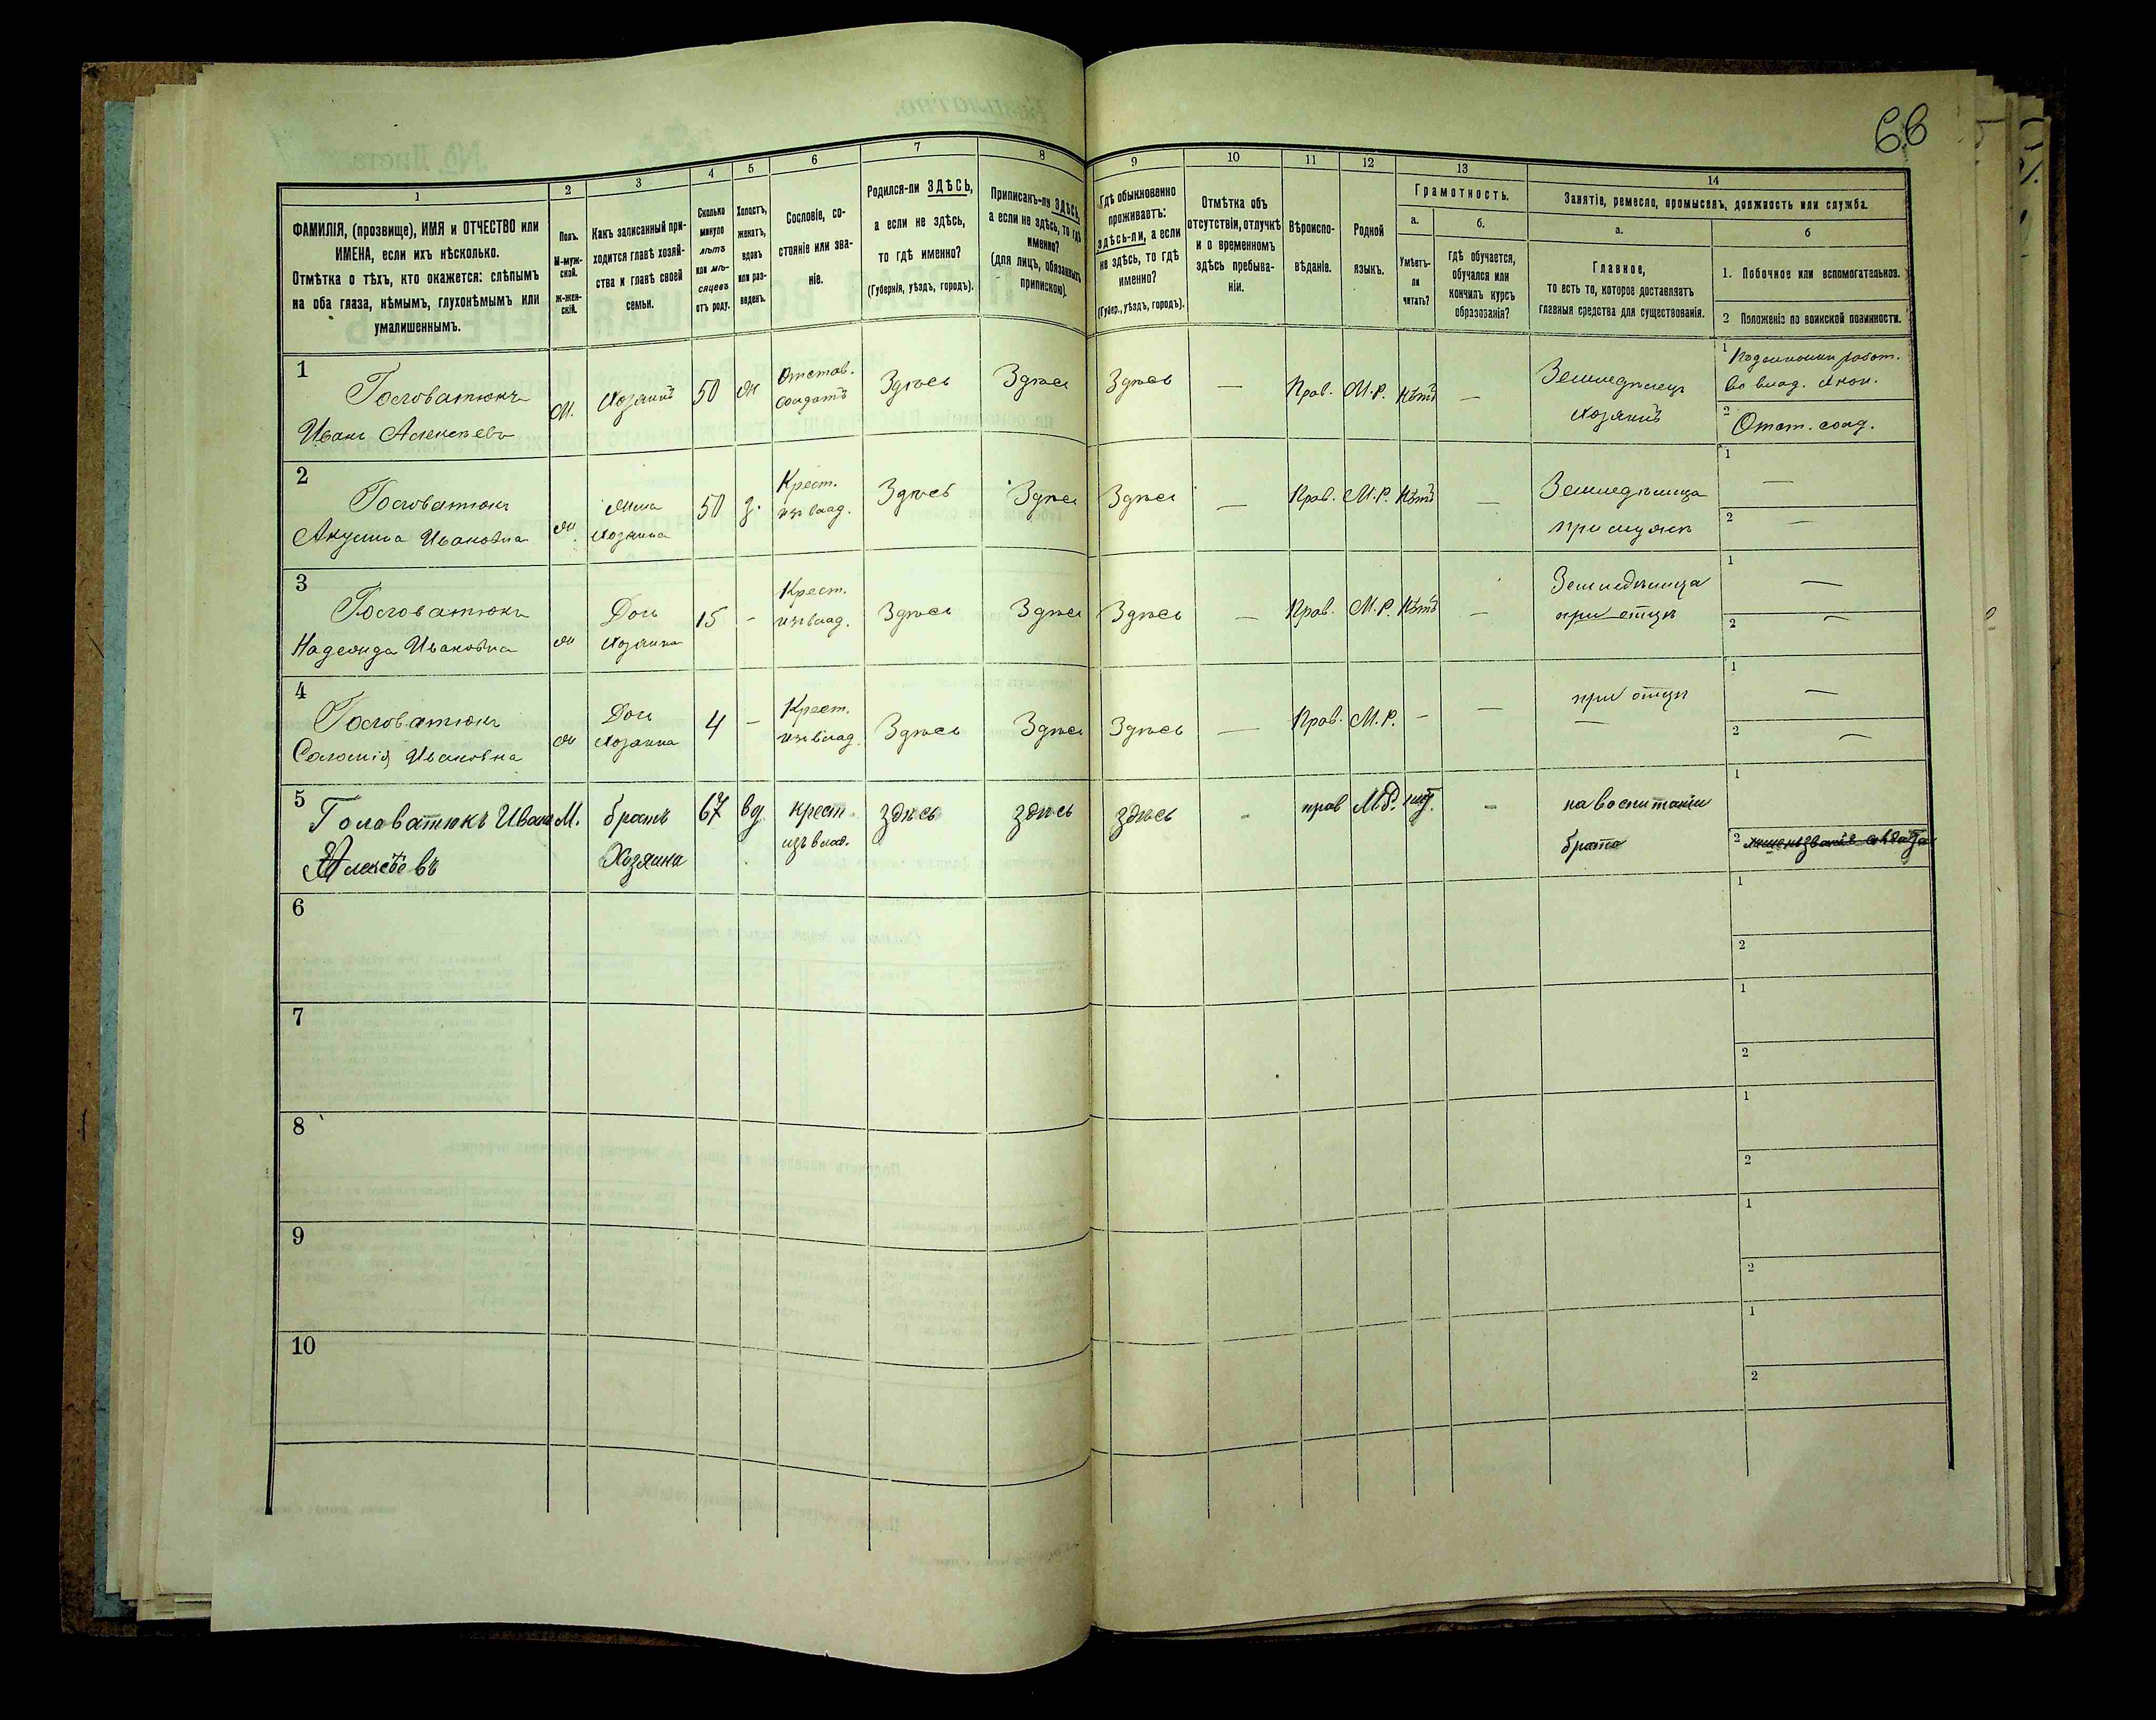 66
1
2
3
4
5
6
7
8
9
10
11
12
13
14
ФАМИЛІЯ, (прозвище), ИМЯ и ОТЧЕСТВО или
ИМЕНА, если ихъ нѣсколько.
Отмѣтка о тѣхъ, кто окажется: слѣпымъ
на оба глаза, нѣмымъ, глухонѣмымъ или
умалишеннымъ.
Полъ.
М-муж-
ской.
Ж-жен-
скій.
Какъ записанный при-
ходится главѣ хозяй-
ства и главѣ своей
семьи.
Сколько
минуло
лѣтъ
или мѣ-
сяцевъ
отъ роду.
Холостъ,
женатъ,
вдовъ
или раз-
веденъ.
Сословіе, со-
стояніе или зва-
ніе.
Родился-ли ЗДѢСЬ,
а если не здѣсь,
то гдѣ именно?
(Губернія, уѣздъ, городъ).
Приписанъ-ли ЗДѢСЬ,
а если не здѣсь, то гдѣ
именно?
(для лицъ, обязанныхъ
припискою).
Гдѣ обыкновенно
проживаетъ:
здѣсь-ли, а если
не здѣсь, то гдѣ
именно?
(Губер., уѣздъ, городъ).
Отмѣтка объ
отсутствіи, отлучкѣ
и о временномъ
здѣсь пребыва-
ніи.
Вѣроиспо-
вѣданіе.
Родной
языкъ.
Грамотность.
а.
Умѣетъ-
ли
читать?
б.
гдѣ обучается,
обучался или
кончилъ курсъ
образованія?
Занятіе, ремесло, промыселъ, должность или служба.
а.
Главное,
то есть то, которое доставляетъ
главныя средства для существованія.
б
1. Побочное или вспомогательное.
2 Положеніе по воинской повинности.
1
Головатюкъ
Иванъ Алексѣевъ
М.
Хозяинъ
50
ж
Отстав.
солдатъ
Здѣсь
Здѣсь
Здѣсь
—
Прав.
М.Р.
Нѣтъ
—
Земледѣлецъ
хозяинъ
1
2 Отст. солд.
2
Головатюкъ
Акулина Ивановна
ж.
Жена
хозяина
50
з.
Крест.
изъ влад.
Здѣсь
Здѣсь
Здѣсь
—
Прав.
М.Р.
Нѣтъ
—
Земледѣлица
при мужѣ
1 —
2 —
3
Головатюкъ
Надежда Ивановна
ж
Дочь
хозяина
15
-
Крест.
изъ влад.
Здѣсь
Здѣсь
Здѣсь
—
Прав.
М.Р.
Нѣтъ
—
Земледѣлица
при отцѣ
1 —
2 —
4
Головатюкъ
Соломія Ивановна
ж
Дочь
хозяина
4
—
Крест.
изъ влад.
Здѣсь
Здѣсь
Здѣсь
—
Прав.
М.Р.
-
—
при отцѣ
—
1 —
2 —
5
Головатюкъ Иванъ
Алексѣевъ
М.
братъ
Хозяина
67
вд
крест.
изъ влад.
здѣсь
здѣсь
здѣсь
-
прав
М.Р.
нѣт.
-
на воспитаніи
брата
1
2
6
1
2
7
1
2
8
1
2
9
1
2
10
1
2